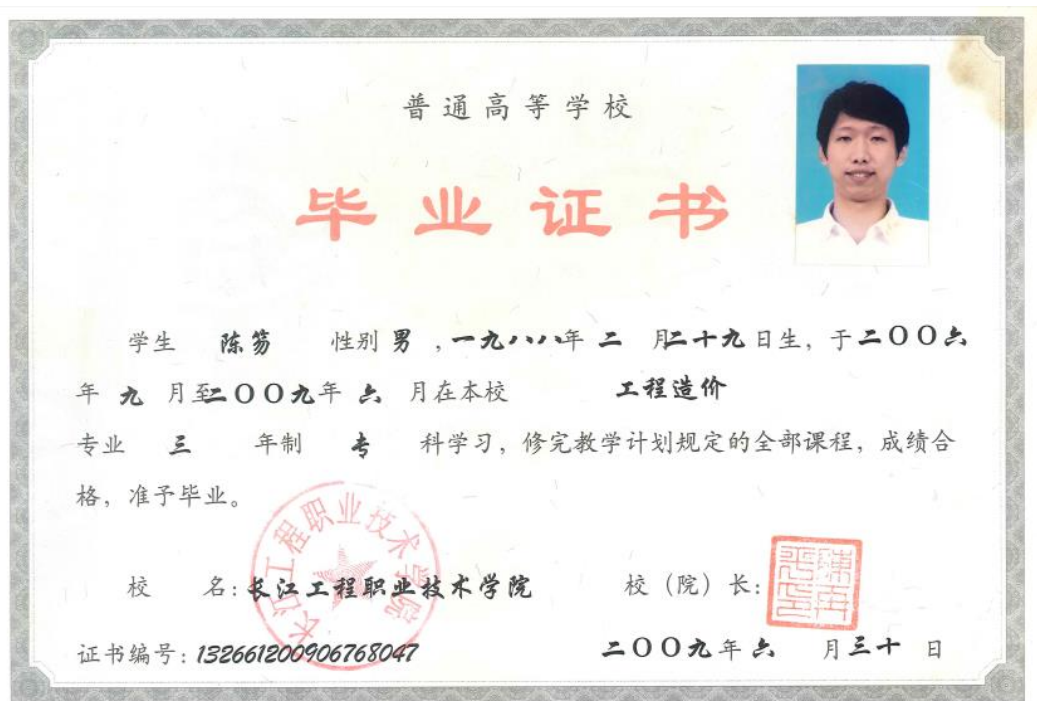 普通高等学校
毕业证书
学生 陈笏 性别 男 ,一九八八年 二 月二十九日生, 于二〇〇六
年 九 月至二〇〇九年 六 月在本校 工程造价
专业 三 年制 专 科学习, 修完教学计划规定的全部课程, 成绩合
格, 准予毕业。
长江工程职业技术学院
校 名: 长江工程职业技术学院 校(院)长:
证书编号: 132661200906768047 二〇〇九年六 月三十 日